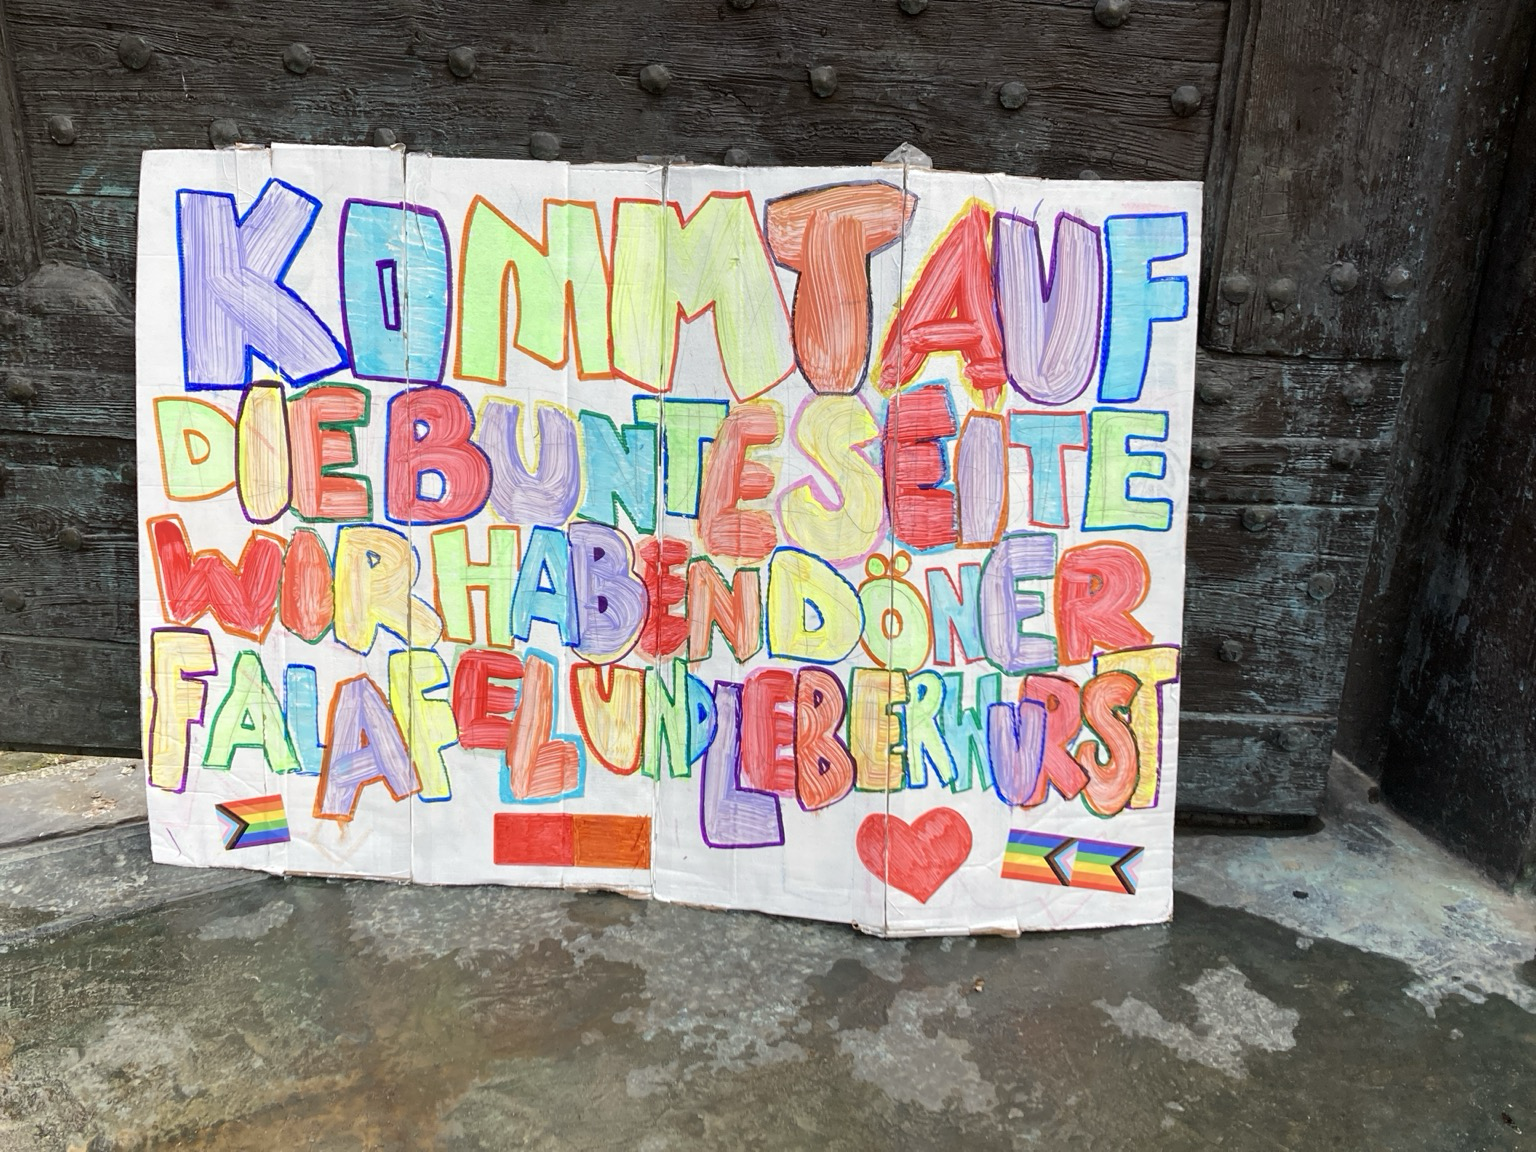 KOMMT AUF
DIE BUNTE SEITE
WIR HABEN DÖNER
FALAFEL UND LEBERWURST